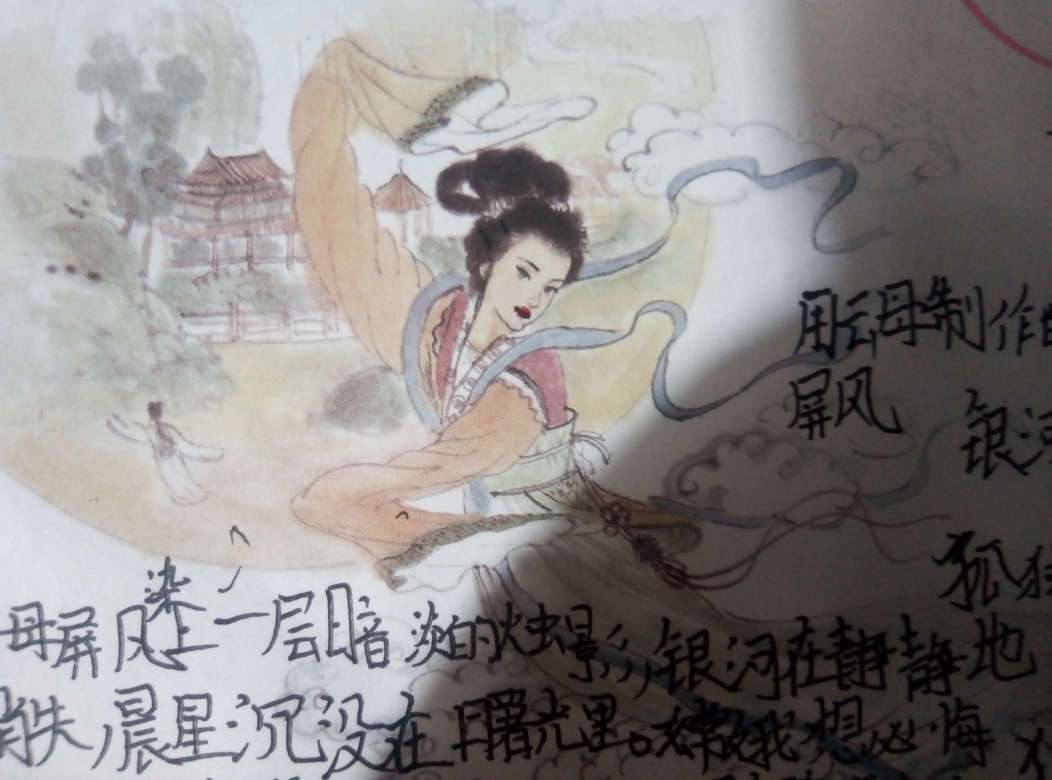 用云母制作
屏风
银河
孤独
母屏风染上一层暗淡的烛影,银河在静静地
消失,晨星沉没在曙光里。嫦娥想必悔